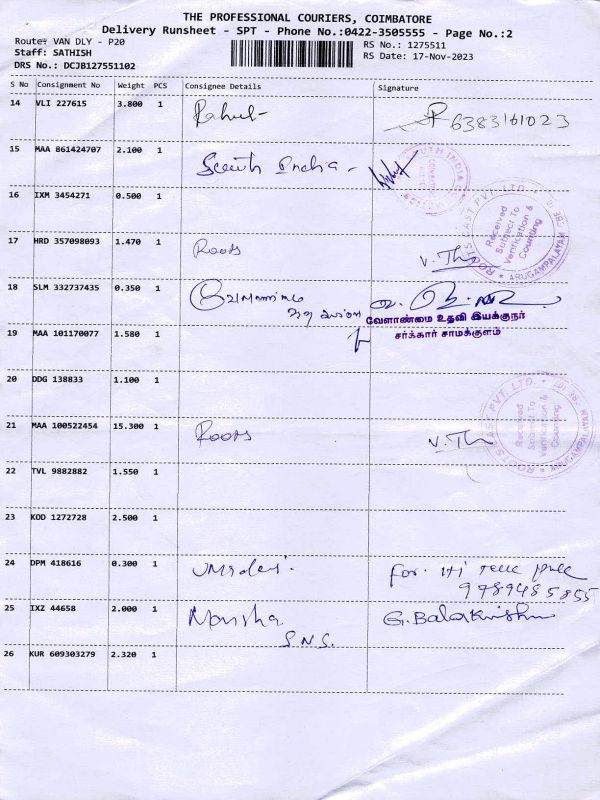 THE PROFESSIONAL COURIERS, COIMBATORE
Delivery Runsheet - SPT - Phone No.:0422-3505555 - Page No.:2
Route: VAN DLY - P20
Staff: SATHISH
DRS No.: DCJB127551102
RS No.: 1275511
RS Date: 17-Nov-2023
S No Consignment No Weight PCS Consignee Details Signature
14 VLI 227615 3.800 1 Rahul- 6383161023
15 MAA 861424707 2.100 1 South India -
16 IXM 3454271 0.500 1
ROOTS CAST PVT. LTD.
Received
Subject To
Verification &
Counting
ARUGAMPALAYAM
17 HRD 357098093 1.470 1 Roots V. Th
18 SLM 332737435 0.350 1
வேளாண்மை உதவி இயக்குநர்
சர்க்கார் சாமக்குளம்
19 MAA 101170077 1.580 1
20 DDG 138833 1.100 1
21 MAA 100522454 15.300 1 Roots V. Th
ROOTS CAST PVT. LTD.
Received
Subject To
Verification &
Counting
ARUGAMPALAYAM
22 TVL 9882882 1.550 1
23 KOD 1272728 2.500 1
24 DPM 418616 0.300 1 for. Hi
9789485855
25 IXZ 44658 2.000 1 G. Balakrishn
S.N.S.
26 KUR 609303279 2.320 1